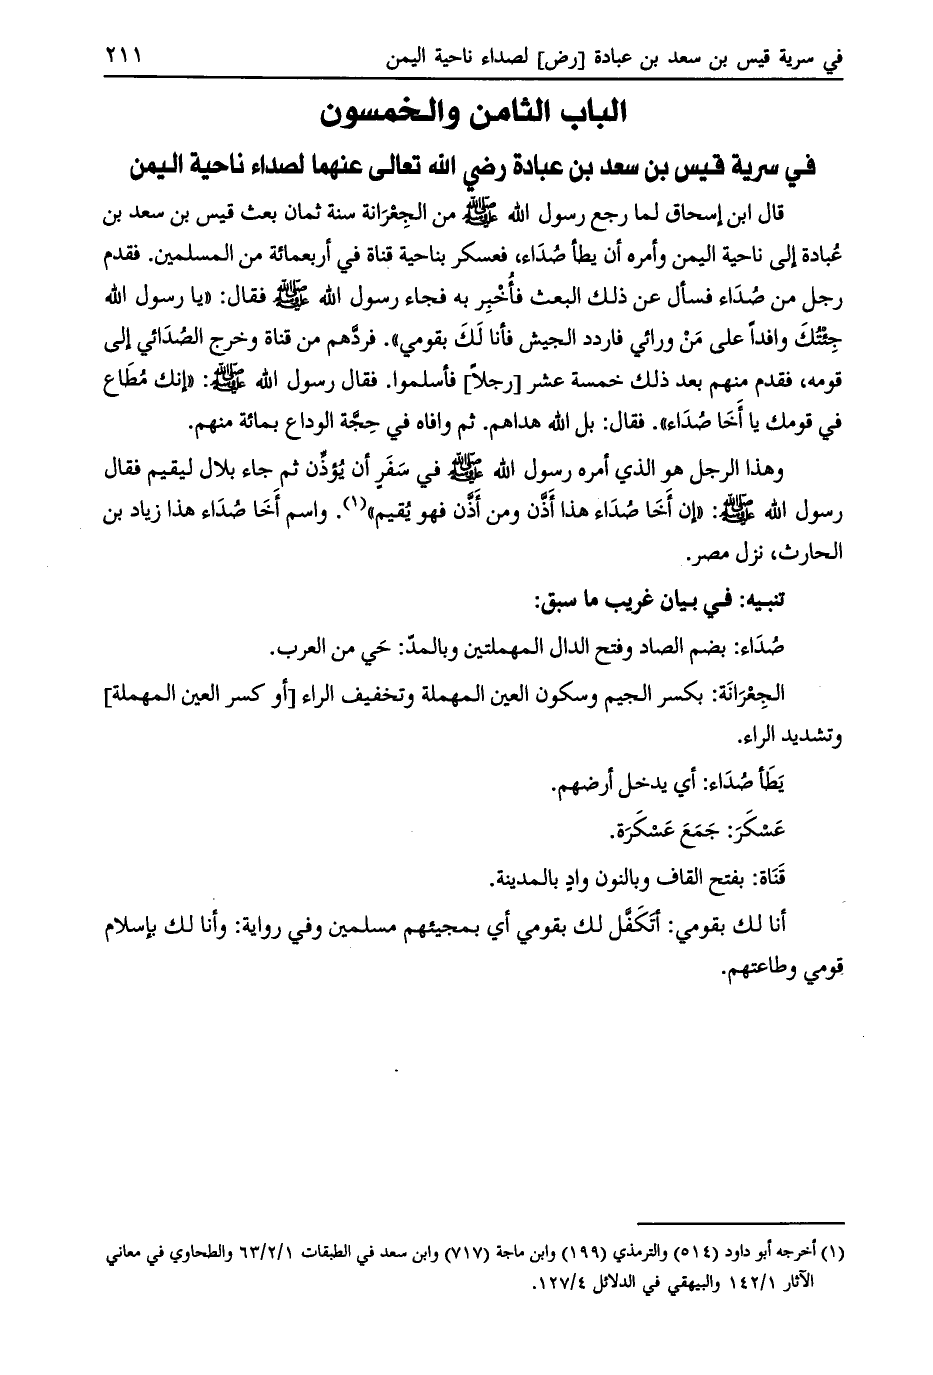 في سرية قيس بن سعد بن عبادة [رض] لصداء ناحية اليمن ٢١١
الباب الثامن والخمسون
في سرية قيس بن سعد بن عبادة رضي الله تعالى عنهما لصداء ناحية اليمن
قال ابن إسحاق لما رجع رسول الله ﷺ من الجِعْرَانة سنة ثمان بعث قيس بن سعد بن
عُبادة إلى ناحية اليمن وأمره أن يطأ صُدَاء، فعسكر بناحية قناة في أربعمائة من المسلمين. فقدم
رجل من صُدَاء فسأل عن ذلك البعث فأُخْبِر به فجاء رسول الله ﷺ فقال: «يا رسول الله
جِئْتُكَ وافداً على مَنْ ورائي فاردد الجيش فأنا لَكَ بقومي». فردَّهم من قناة وخرج الصُدَائي إلى
قومه، فقدم منهم بعد ذلك خمسة عشر [رجلاً] فأسلموا. فقال رسول الله ﷺ: «إنك مُطَاع
في قومك يا أَخَا صُدَاء». فقال: بل الله هداهم. ثم وافاه في حِجَّة الوداع بمائة منهم.
وهذا الرجل هو الذي أمره رسول الله ﷺ في سَفَرٍ أن يُؤذِّن ثم جاء بلال ليقيم فقال
رسول الله ﷺ: «إن أَخَا صُدَاء هذا أَذَّن ومن أَذَّن فهو يُقيم»(١). واسم أَخَا صُدَاء هذا زياد بن
الحارث، نزل مصر.
تنبيه: في بيان غريب ما سبق:
صُدَاء: بضم الصاد وفتح الدال المهملتين وبالمدّ: حَي من العرب.
الجِعْرَانَة: بكسر الجيم وسكون العين المهملة وتخفيف الراء [أو كسر العين المهملة]
وتشديد الراء.
يَطَأ صُدَاء: أي يدخل أرضهم.
عَسْكَرَ: جَمَعَ عَسْكَرَة.
قَنَاة: بفتح القاف وبالنون وادٍ بالمدينة.
أنا لك بقومي: أتَكَفَّل لك بقومي أي بمجيئهم مسلمين وفي رواية: وأنا لك بإسلام
قومي وطاعتهم.
(١) أخرجه أبو داود (٥١٤) والترمذي (١٩٩) وابن ماجة (٧١٧) وابن سعد في الطبقات ٦٣/٢/١ والطحاوي في معاني
الآثار ١٤٢/١ والبيهقي في الدلائل ١٢٧/٤.